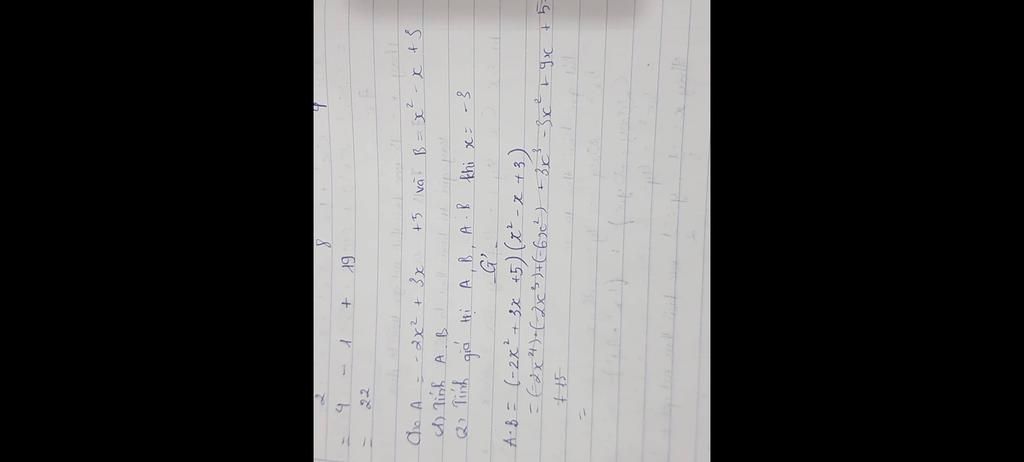 2 8 4
= 4 - 1 + 19
= 22
Cho A = -2x² + 3x +5 và B = x² - x + 3
(1) Tính A.B
(2) Tính giá trị A, B, A.B khi x = -3
G'
A.B = (-2x² + 3x + 5)(x² - x + 3)
= (-2x⁴)+(-2x³)+(-6x²) + 3x³ - 3x² + 9x + 5
+ 15
=